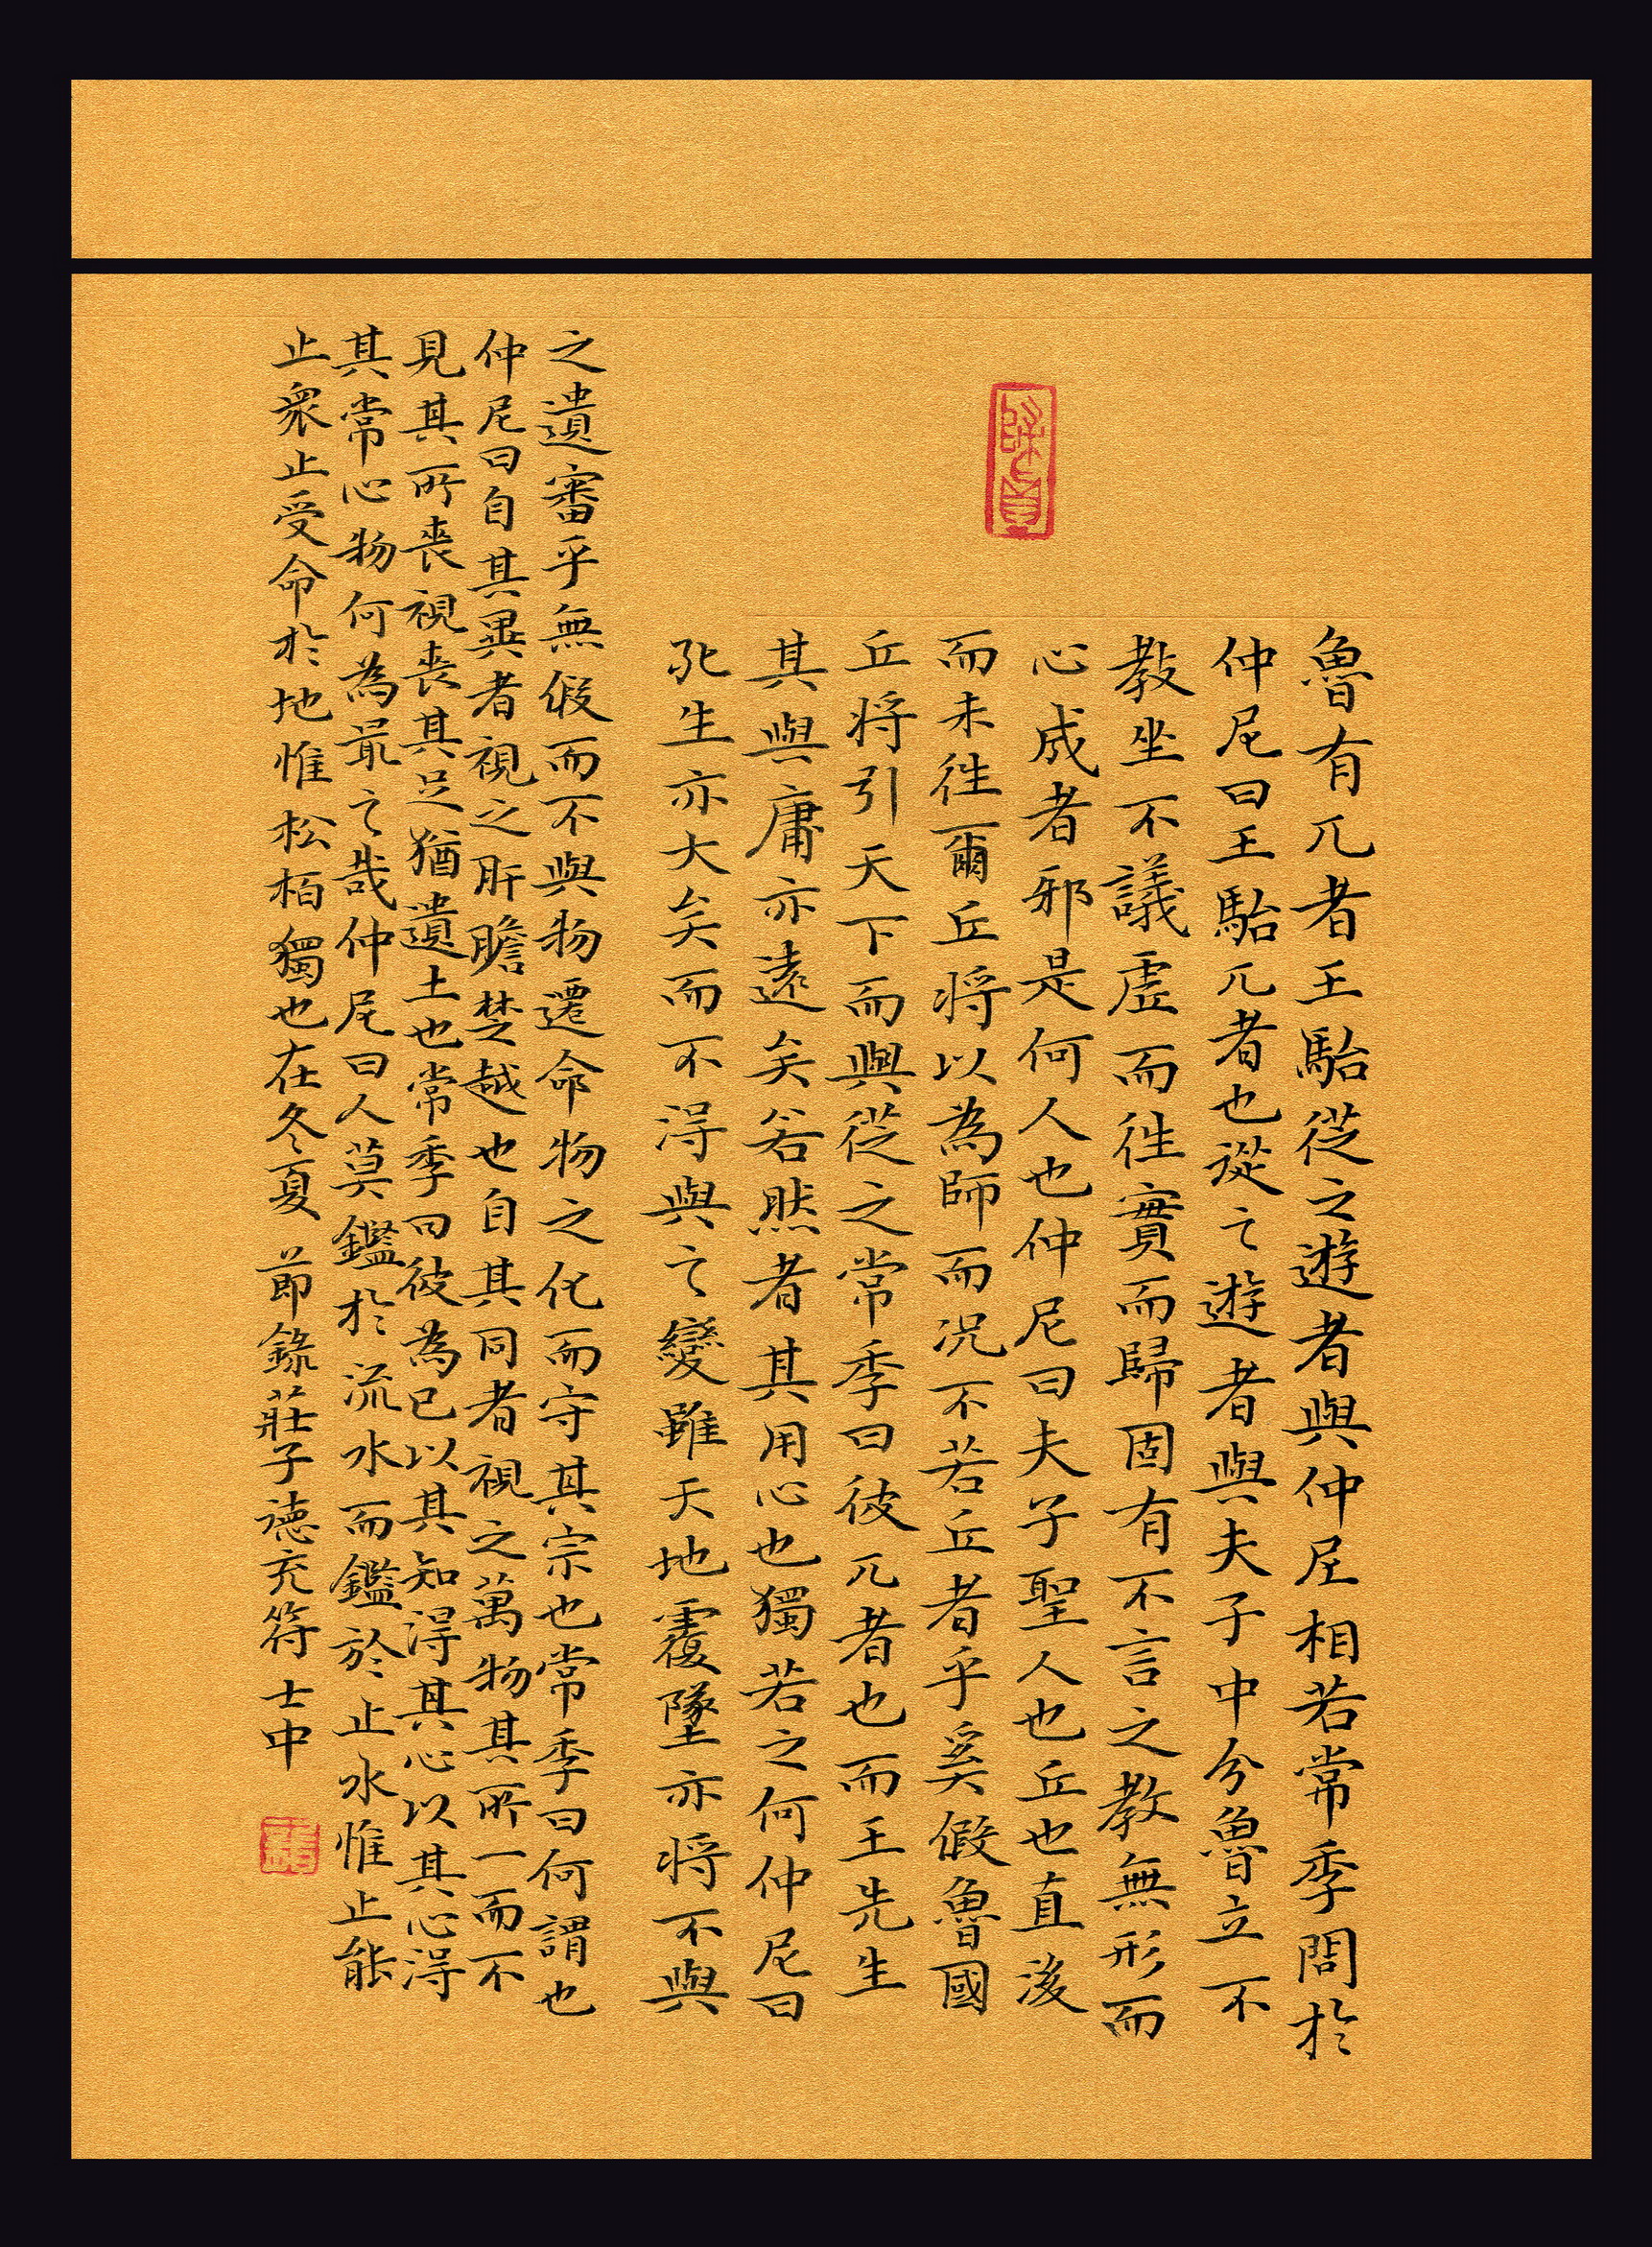 魯有兀者王駘從之遊者與仲尼相若常季問於
仲尼曰王駘兀者也從之遊者與夫子中分魯立不
教坐不議虛而往實而歸固有不言之教無形而
心成者邪是何人也仲尼曰夫子聖人也丘也直後
而未往爾丘將以為師而況不若丘者乎奚假魯國
丘將引天下而與從之常季曰彼兀者也而王先生
其與庸亦遠矣若然者其用心也獨若之何仲尼曰
死生亦大矣而不得與之變雖天地覆墜亦將不與
之遺審乎無假而不與物遷命物之化而守其宗也常季曰何謂也
仲尼曰自其異者視之肝膽楚越也自其同者視之萬物其所一而不
見其所喪視喪其足猶遺土也常季曰彼為己以其知得其心以其心得
其常心物何為最之哉仲尼曰人莫鑑於流水而鑑於止水惟止能
止衆止受命於地惟松柏獨也在冬夏 節錄莊子德充符士中